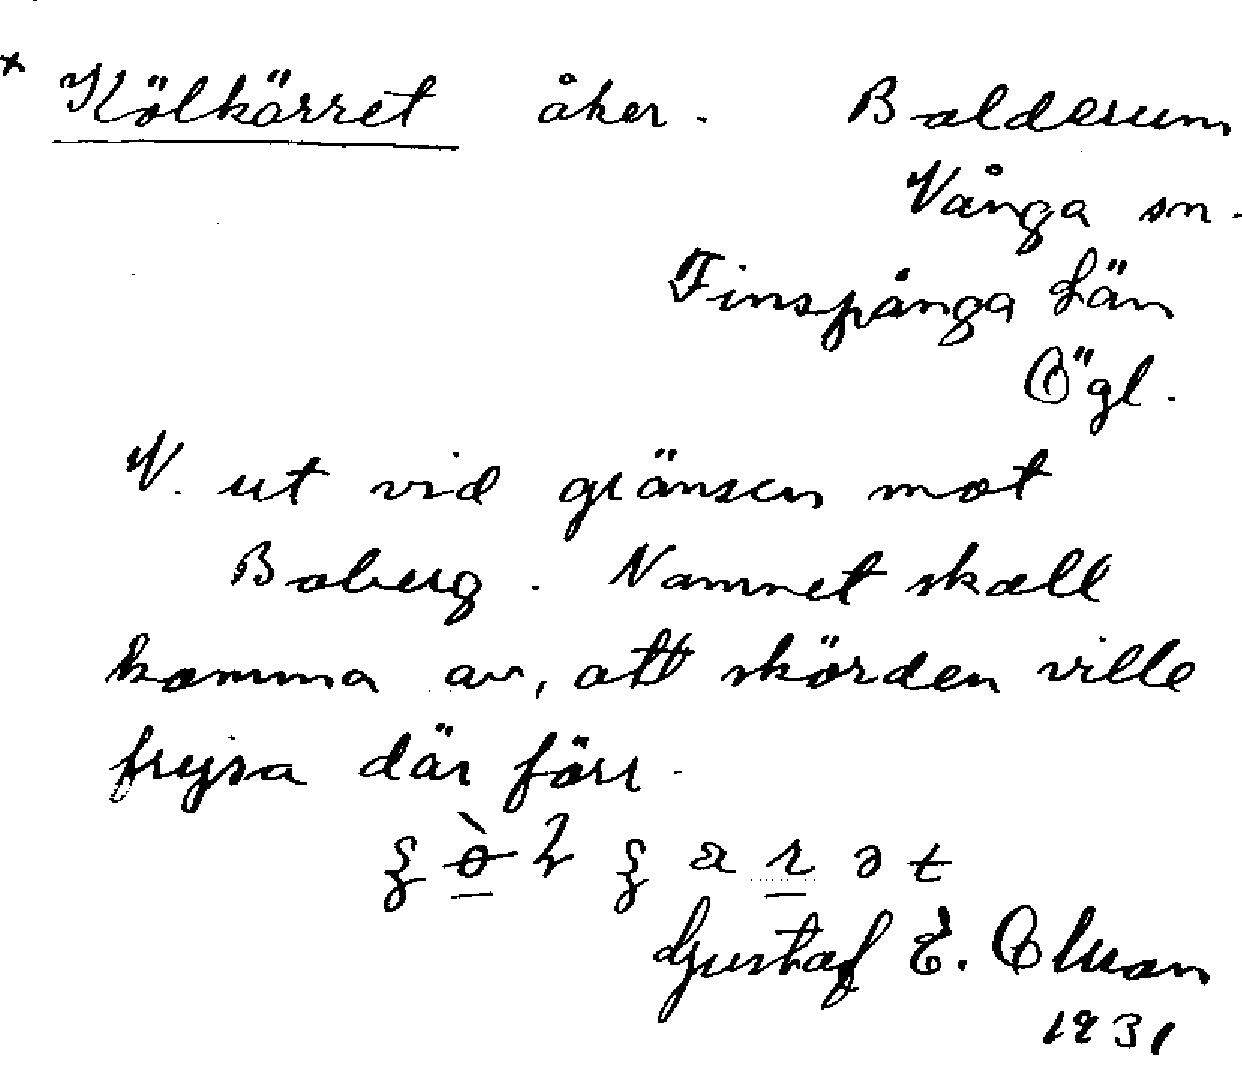 × Kölkärret åker. Balderum
Vånga sn.
Finspånga län
Ögl.
V. ut vid gränsen mot
Boberg. Namnet skall
komma av, att skörden ville
frysa där förr.
Gustaf E. Olsson
1931